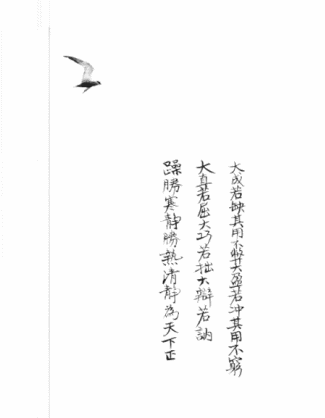 大成若缺其用不弊大盈若冲其用不窮
大直若屈大巧若拙大辯若訥
躁勝寒靜勝熱清靜為天下正